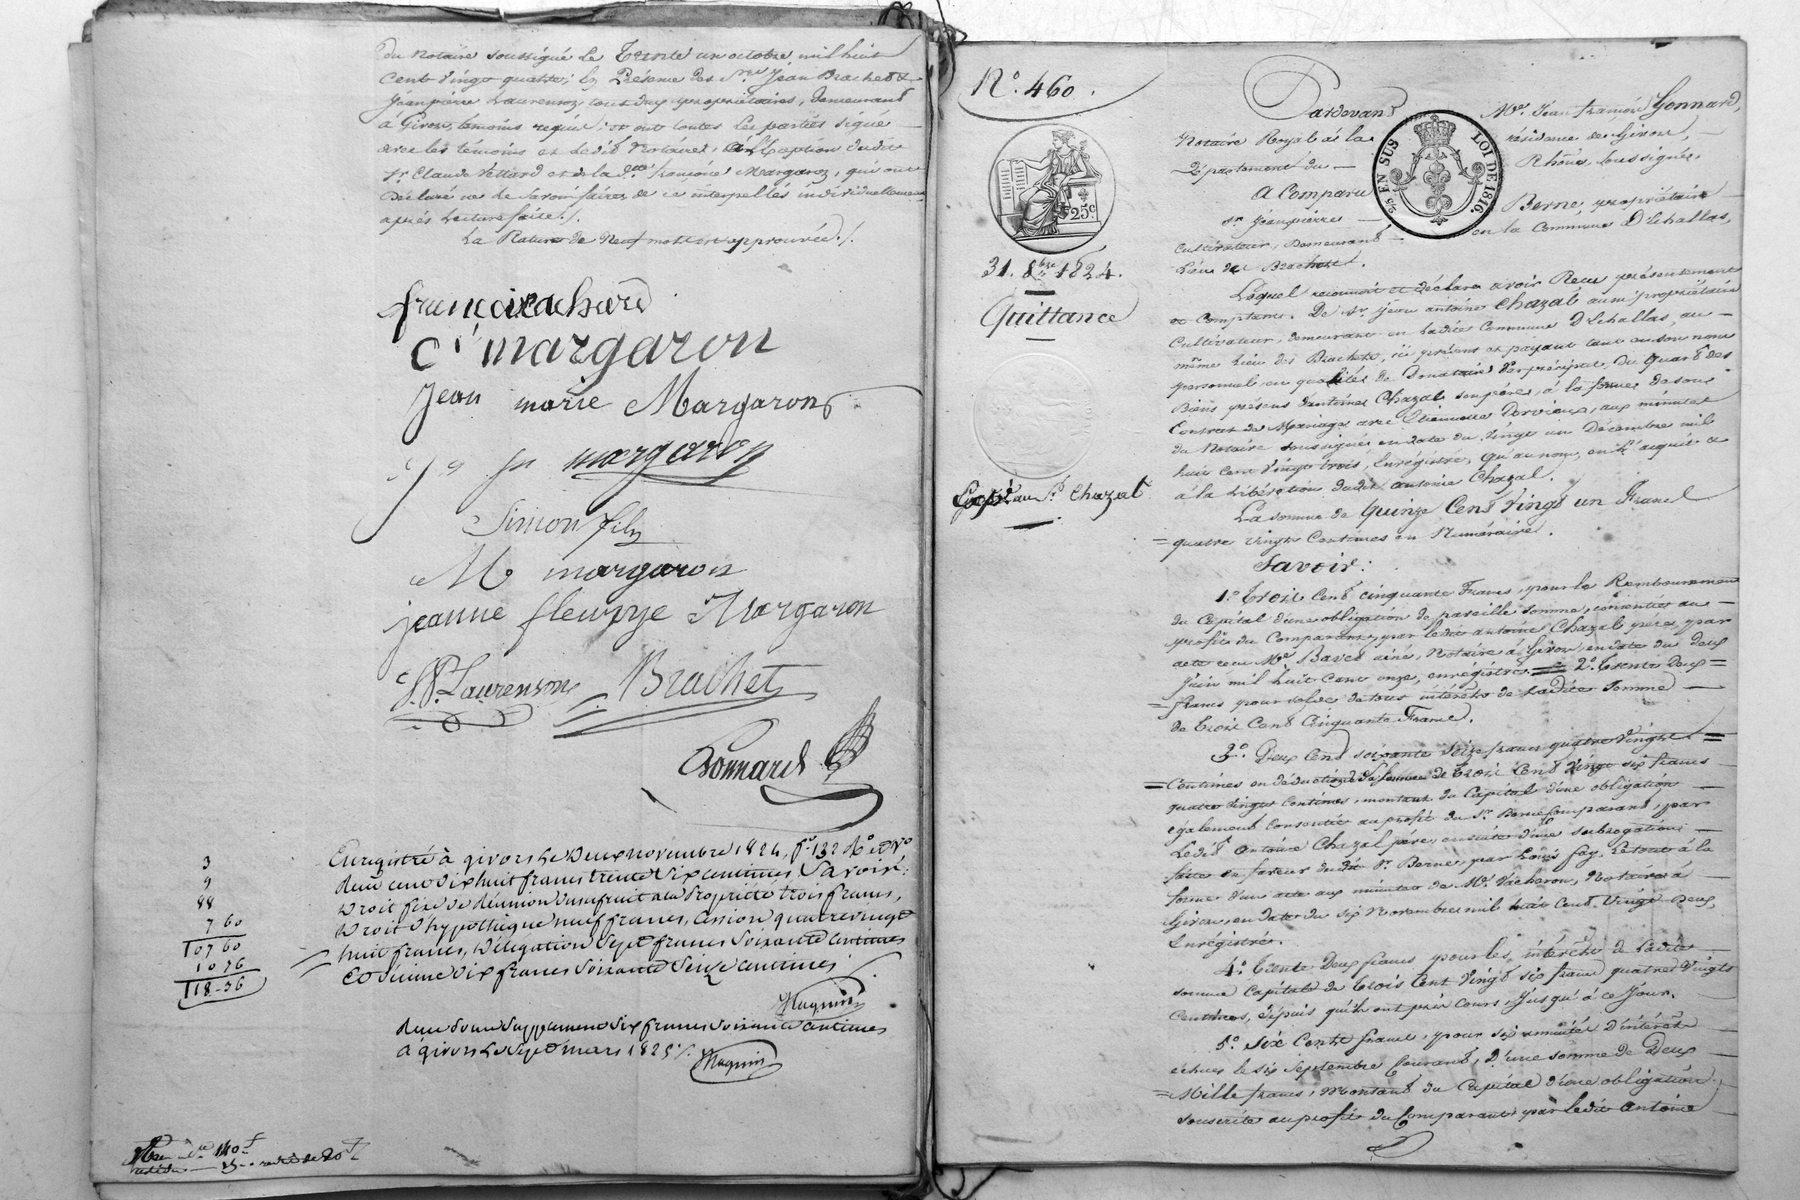 du Notaire soussigné le Trente un octobre, mil huit
cent vingt quatre; En Présence des Srs Jean Brachet &
Jeanpierre Laurenson, tout deux propriétaires, demeurant
à Givors, témoins requis; et ont toutes les parties signé
avec les témoins et ledit Notaire, à l'Exception dudit
Sr Claude Pettard et de la dte françoise Margaron, qui ont
Déclaré ne le Savoir faire, de ce interpellés individuellement
après Lecture faite./.
La Rature de Neuf mots est approuvée./.
françoise achard
Ct margaron
Jean marie Margaron
margaron
Simon fils
M margaron
jeanne fleurye Margaron
J.P. Laurenson Brachet
Gonnard
Enregistré à givors le deux novembre 1824, fo 132 Ro et Vo
deux cent dix huit francs trente six centimes, Savoir:
3
Droit fixe de Réunion d'usufruit à la Propriété trois francs,
9
Droit d'hypothèque neuf francs, Cession quatrevingt
88
huit francs, Délégation Sept francs Soixante centimes
7 60
107 60
Et Dixime dix francs Soixante Seize centimes
10 76
118-36
Magnin
Reçu pour Supplément Six francs Soixante centimes
à givors le Sept mars 1825./.
Magnin
No. 460.
25c
31. 8bre 1824.
Quittance
Expé au Sr Chazal
5/5 EN SUS LOI DE 1816.
Pardevant Me. Jean François Gonnard,
Notaire Royal à la résidence de Givors,
Département du Rhône soussigné,
A Comparu
Sr Jeanpierre Berne propriétaire
Cultivateur, Demeurant en la Commune D'Echallas,
Lieu des Brachets.
Lequel reconnoit et déclare avoir Reçu présentement
et Comptant. De Sr. Jean antoine Chazal aussi propriétaire
Cultivateur, demeurant en ladite Commune D'Echallas, au
même Lieu des Brachets, ici présent et payant tant en son nom
personnel en qualité de Donataire Par préciput, du quart des
Biens présens d'antoine Chazal son père, à la forme de son
Contrat de Mariage avec Etiennette Dervieux, aux minutes
du Notaire soussigné en date du vingt un Décembre mil
huit cent vingt trois, Enregistré, Qu'au nom, en l'acquit et
à la Libération dudit antoine Chazal.
La somme de Quinze Cent Vingt un Francs
quatre vingts Centimes en Numéraire.
Savoir:
1o. Trois Cent cinquante Francs, pour le Remboursement
du Capital d'une obligation de pareille Somme, consentie au
profit du Comparant, par ledit antoine Chazal père, par
acte reçu Me Bavet ainé, Notaire à Givors, en date du deux
Juin mil huit Cent onze, enregistré. 2o. Trente Deux
francs pour solde de tous intérêts de ladite Somme
de Trois Cent Cinquante Francs.
3o. Deux Cent soixante Seize francs quatre Vingts
Centimes en déduction de la somme de Trois Cent Vingt six francs
quatre vingts Centimes, montant du Capital d'une obligation
également Consentie au profit du Sr. Berne Comparant, par
Ledit Antoine Chazal père, ensuite d'une subrogation
faite en faveur dudit Sr. Berne, par Louis Fay, Le tout à la
forme d'un acte aux minutes de Me. Vacheron, Notaire à
Givors, en date du six Novembre mil huit Cent Vingt Deux,
Enregistré.
4o. Trente Deux francs pour les intérêts de ladite
somme Capitale de Trois Cent Vingt six francs quatre Vingts
Centimes, depuis qu'ils ont pris Cours, Jusqu'à ce Jour.
5o. Six Cents francs, pour six années d'intérêts
échues le six Septembre Courant, d'une somme de Deux
Mille francs, Montant du Capital d'une obligation
souscrite au profit du Comparant par ledit Antoine